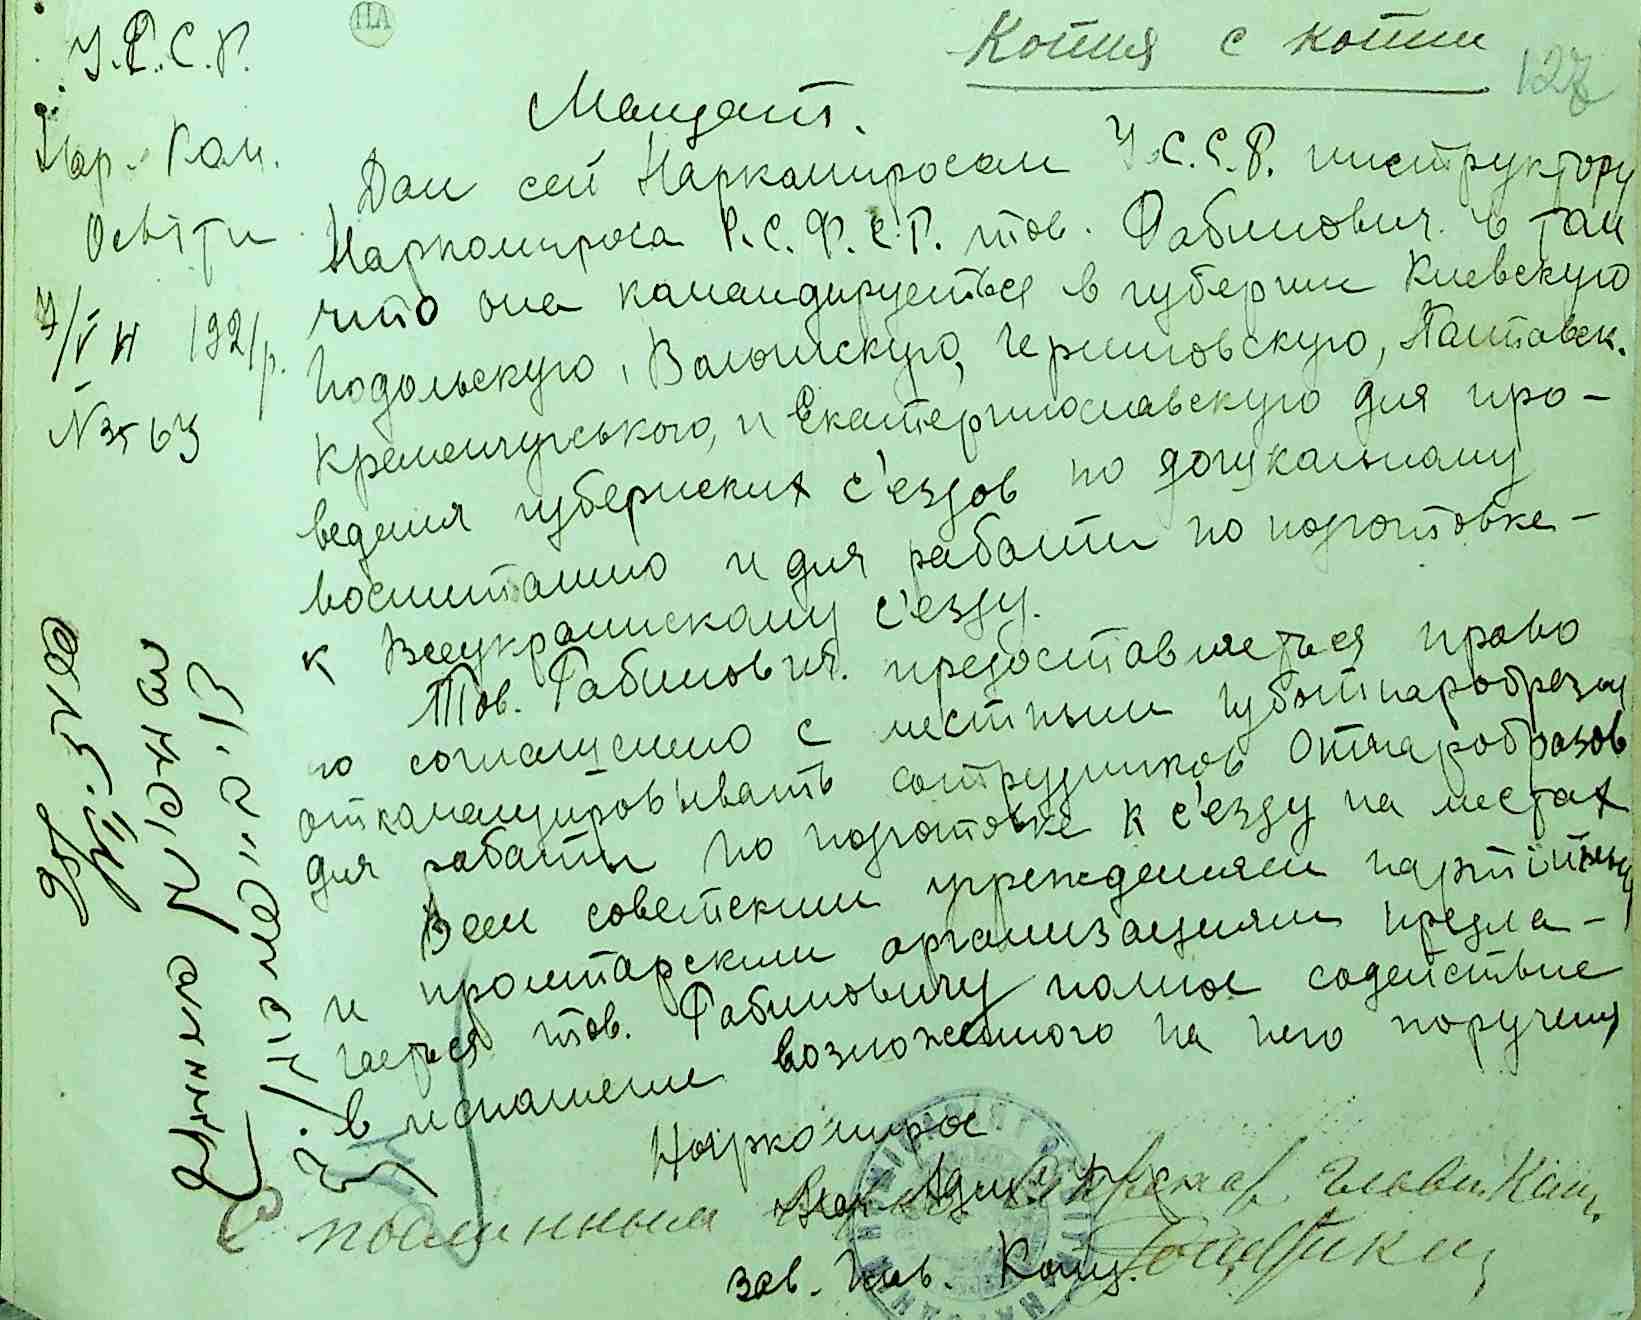 Копия с копии
127
У.С.С.Р.
Нар. Ком.
Освіти
7/VII 1921 р.
N 3563
Мандат.
Дан сей Наркомпросом У.С.С.Р. инструктору
Наркомпроса Р.С.Ф.С.Р. тов. Рабинович в том
что она командируеться в губернии Киевскую
Подольскую, Волынскую, Черниговскую, Полтавск.
Кременчугського, и Екатеринославскую для про-
ведения губернских с'ездов по дошкольному
воспитанию и для работы по подготовке-
к Всеукраинскому с'езду.
Тов. Рабинович. предоставляеться право
по соглашению с местными Губотнаробразам
откомандировывать сотрудников Отнаробразов
для работы по подготовке к с'езду на местах
Всем советским учреждениям партійным
и пролетарским организациям предла-
гаеться тов. Рабиновичу полное содействие
в исполнение возложенного на него поручения
Наркомпрос
зав. Адм.
зав. Глав. Канц.
С подлинным верно Глав. Канц.